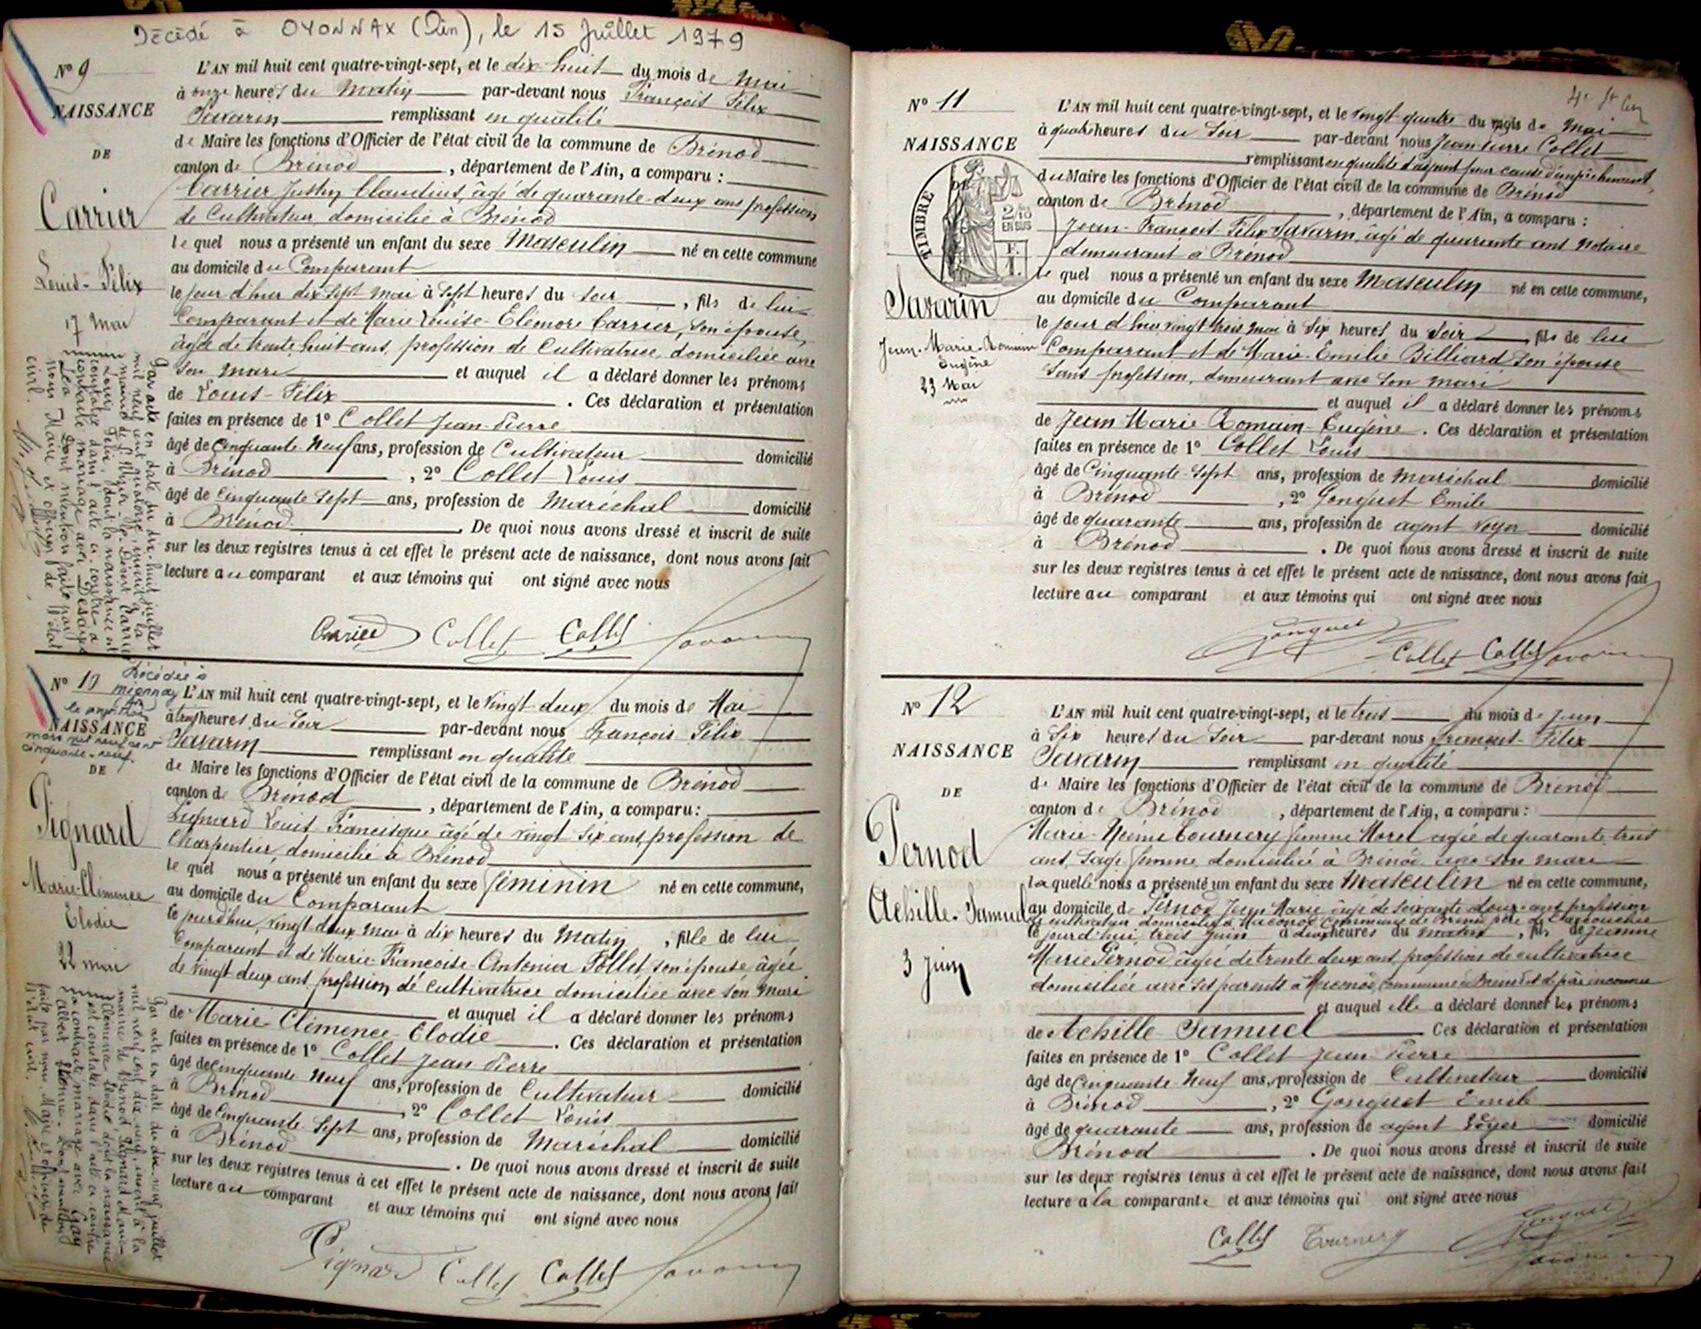 Décédé à OYONNAX (Ain), le 15 Juillet 1979
N° 9
NAISSANCE
DE
Carrier
Louis-Félix
17 Mai
L'AN mil huit cent quatre-vingt-sept, et le dix huit du mois de Mai
à onze heures du Matin par-devant nous François Félix
Savarin remplissant en qualité
de Maire les fonctions d'Officier de l'état civil de la commune de Brénod
canton de Brénod, département de l'Ain, a comparu :
Carrier Claudius, âgé de quarante-deux ans profession
de Cultivateur domicilié à Brénod
le quel nous a présenté un enfant du sexe Masculin né en cette commune
au domicile du Comparant
le jour d'hier dix sept mai à Sept heures du soir, fils de lui
Comparant et de Marie Louise Elémore Carrier, son épouse,
âgée de trente huit ans, profession de Cultivatrice, domiciliée avec
son mari et auquel il a déclaré donner les prénoms
de Louis-Félix. Ces déclaration et présentation
faites en présence de 1° Collet Jean Pierre
âgé de Cinquante Neuf ans, profession de Cultivateur domicilié
à Brénod, 2° Collet Louis
âgé de Cinquante Sept ans, profession de Maréchal domicilié
à Brénod. De quoi nous avons dressé et inscrit de suite
sur les deux registres tenus à cet effet le présent acte de naissance, dont nous avons fait
lecture au comparant et aux témoins qui ont signé avec nous
Carrier Collet Collet Savarin
Par acte en date du dix-huit juillet
mil neuf cent quatorze, inscrit à la
mairie de Carrier
Louis Félix, dont la naissance est
constatée dans l'acte ci-contre a
contracté mariage avec
Léa. Dont mention faite par
nous Maire et officier de l'état
civil.
N° 10
Décédée à
mionnay
NAISSANCE
mars mil neuf cent
cinquante-neuf.
DE
Pignard
Marie-Clémence
Elodie
22 mai
L'AN mil huit cent quatre-vingt-sept, et le Vingt deux du mois de Mai
à trois heures du Soir par-devant nous François Félix
Savarin remplissant en qualité
de Maire les fonctions d'Officier de l'état civil de la commune de Brénod
canton de Brénod, département de l'Ain, a comparu :
Pignard Louis Francisque âgé de vingt six ans, profession de
Charpentier, domicilié à Brénod
le quel nous a présenté un enfant du sexe féminin né en cette commune,
au domicile du Comparant
le jourd'hui, vingt deux Mai à dix heures du Matin, fille de lui
Comparant et de Marie Françoise Antonia Follet, son épouse, âgée
de vingt deux ans, profession de Cultivatrice domiciliée avec son Mari
et auquel il a déclaré donner les prénoms
de Marie Clémence Elodie. Ces déclaration et présentation
faites en présence de 1° Collet Jean Pierre
âgé de Cinquante Neuf ans, profession de Cultivateur domicilié
à Brénod, 2° Collet Louis
âgé de Cinquante Sept ans, profession de Maréchal domicilié
à Brénod. De quoi nous avons dressé et inscrit de suite
sur les deux registres tenus à cet effet le présent acte de naissance, dont nous avons fait
lecture au comparant et aux témoins qui ont signé avec nous
Pignard Collet Collet Savarin
Par acte en date du dix-neuf juillet
mil neuf cent dix neuf, inscrit à la
mairie de Brénod, Pignard Marie
Clémence Elodie dont la naissance
est constatée dans l'acte ci-contre
a contracté mariage avec Gay
Albert. Dont mention
faite par nous, Maire et officier de
l'état civil.
N° 11
NAISSANCE
TIMBRE
2/10
EN SUS
Savarin
Jean-Marie-Romain
Eugène
23 Mai
L'AN mil huit cent quatre-vingt-sept, et le vingt-quatre du mois de Mai
à quatre heures du Soir par-devant nous Jean Pierre Collet
remplissant en qualité d'adjoint pour cause d'empêchement
du Maire les fonctions d'Officier de l'état civil de la commune de Brénod
canton de Brénod, département de l'Ain, a comparu :
Jean-François Félix Savarin, âgé de quarante ans Notaire
demeurant à Brénod
le quel nous a présenté un enfant du sexe Masculin né en cette commune,
au domicile du Comparant
le jour d'hier vingt trois Mai à Six heures du Soir, fils de lui
Comparant et de Marie-Emilie Billiard, son épouse
Sans profession, demeurant avec son mari
et auquel il a déclaré donner les prénoms
de Jean Marie Romain Eugène. Ces déclaration et présentation
faites en présence de 1° Collet Louis
âgé de Cinquante-Sept ans, profession de Maréchal domicilié
à Brénod, 2° Gonguet Emile
âgé de quarante ans, profession de agent voyer domicilié
à Brénod. De quoi nous avons dressé et inscrit de suite
sur les deux registres tenus à cet effet le présent acte de naissance, dont nous avons fait
lecture au comparant et aux témoins qui ont signé avec nous
Gonguet Collet Collet Savarin
N° 12
NAISSANCE
DE
Pernod
Achille-Samuel
3 Juin
L'AN mil huit cent quatre-vingt-sept, et le trois du mois de Juin
à Six heures du Soir par-devant nous François-Félix
Savarin remplissant en qualité
de Maire les fonctions d'Officier de l'état civil de la commune de Brénod
canton de Brénod, département de l'Ain, a comparu :
Marie Tournery femme Morel âgée de quarante trois
ans, Sage femme domiciliée à Brénod avec son mari
laquelle nous a présenté un enfant du sexe Masculin né en cette commune,
au domicile de Pernod Jean Marie âgé de soixante douze ans profession
de cultivateur domicilié à commune de Brénod
le jourd'hui trois Juin à deux heures du matin, fils de Jeanne
Marie Pernod âgée de trente deux ans, profession de cultivatrice
domiciliée avec ses parents à commune de Brénod et de père inconnu
et auquel elle a déclaré donner les prénoms
de Achille Samuel. Ces déclaration et présentation
faites en présence de 1° Collet Jean Pierre
âgé de Cinquante Neuf ans, profession de Cultivateur domicilié
à Brénod, 2° Gonguet Emile
âgé de quarante ans, profession de agent Voyer domicilié
Brénod. De quoi nous avons dressé et inscrit de suite
sur les deux registres tenus à cet effet le présent acte de naissance, dont nous avons fait
lecture a la comparante et aux témoins qui ont signé avec nous
Collet Tournery Gonguet
Savarin